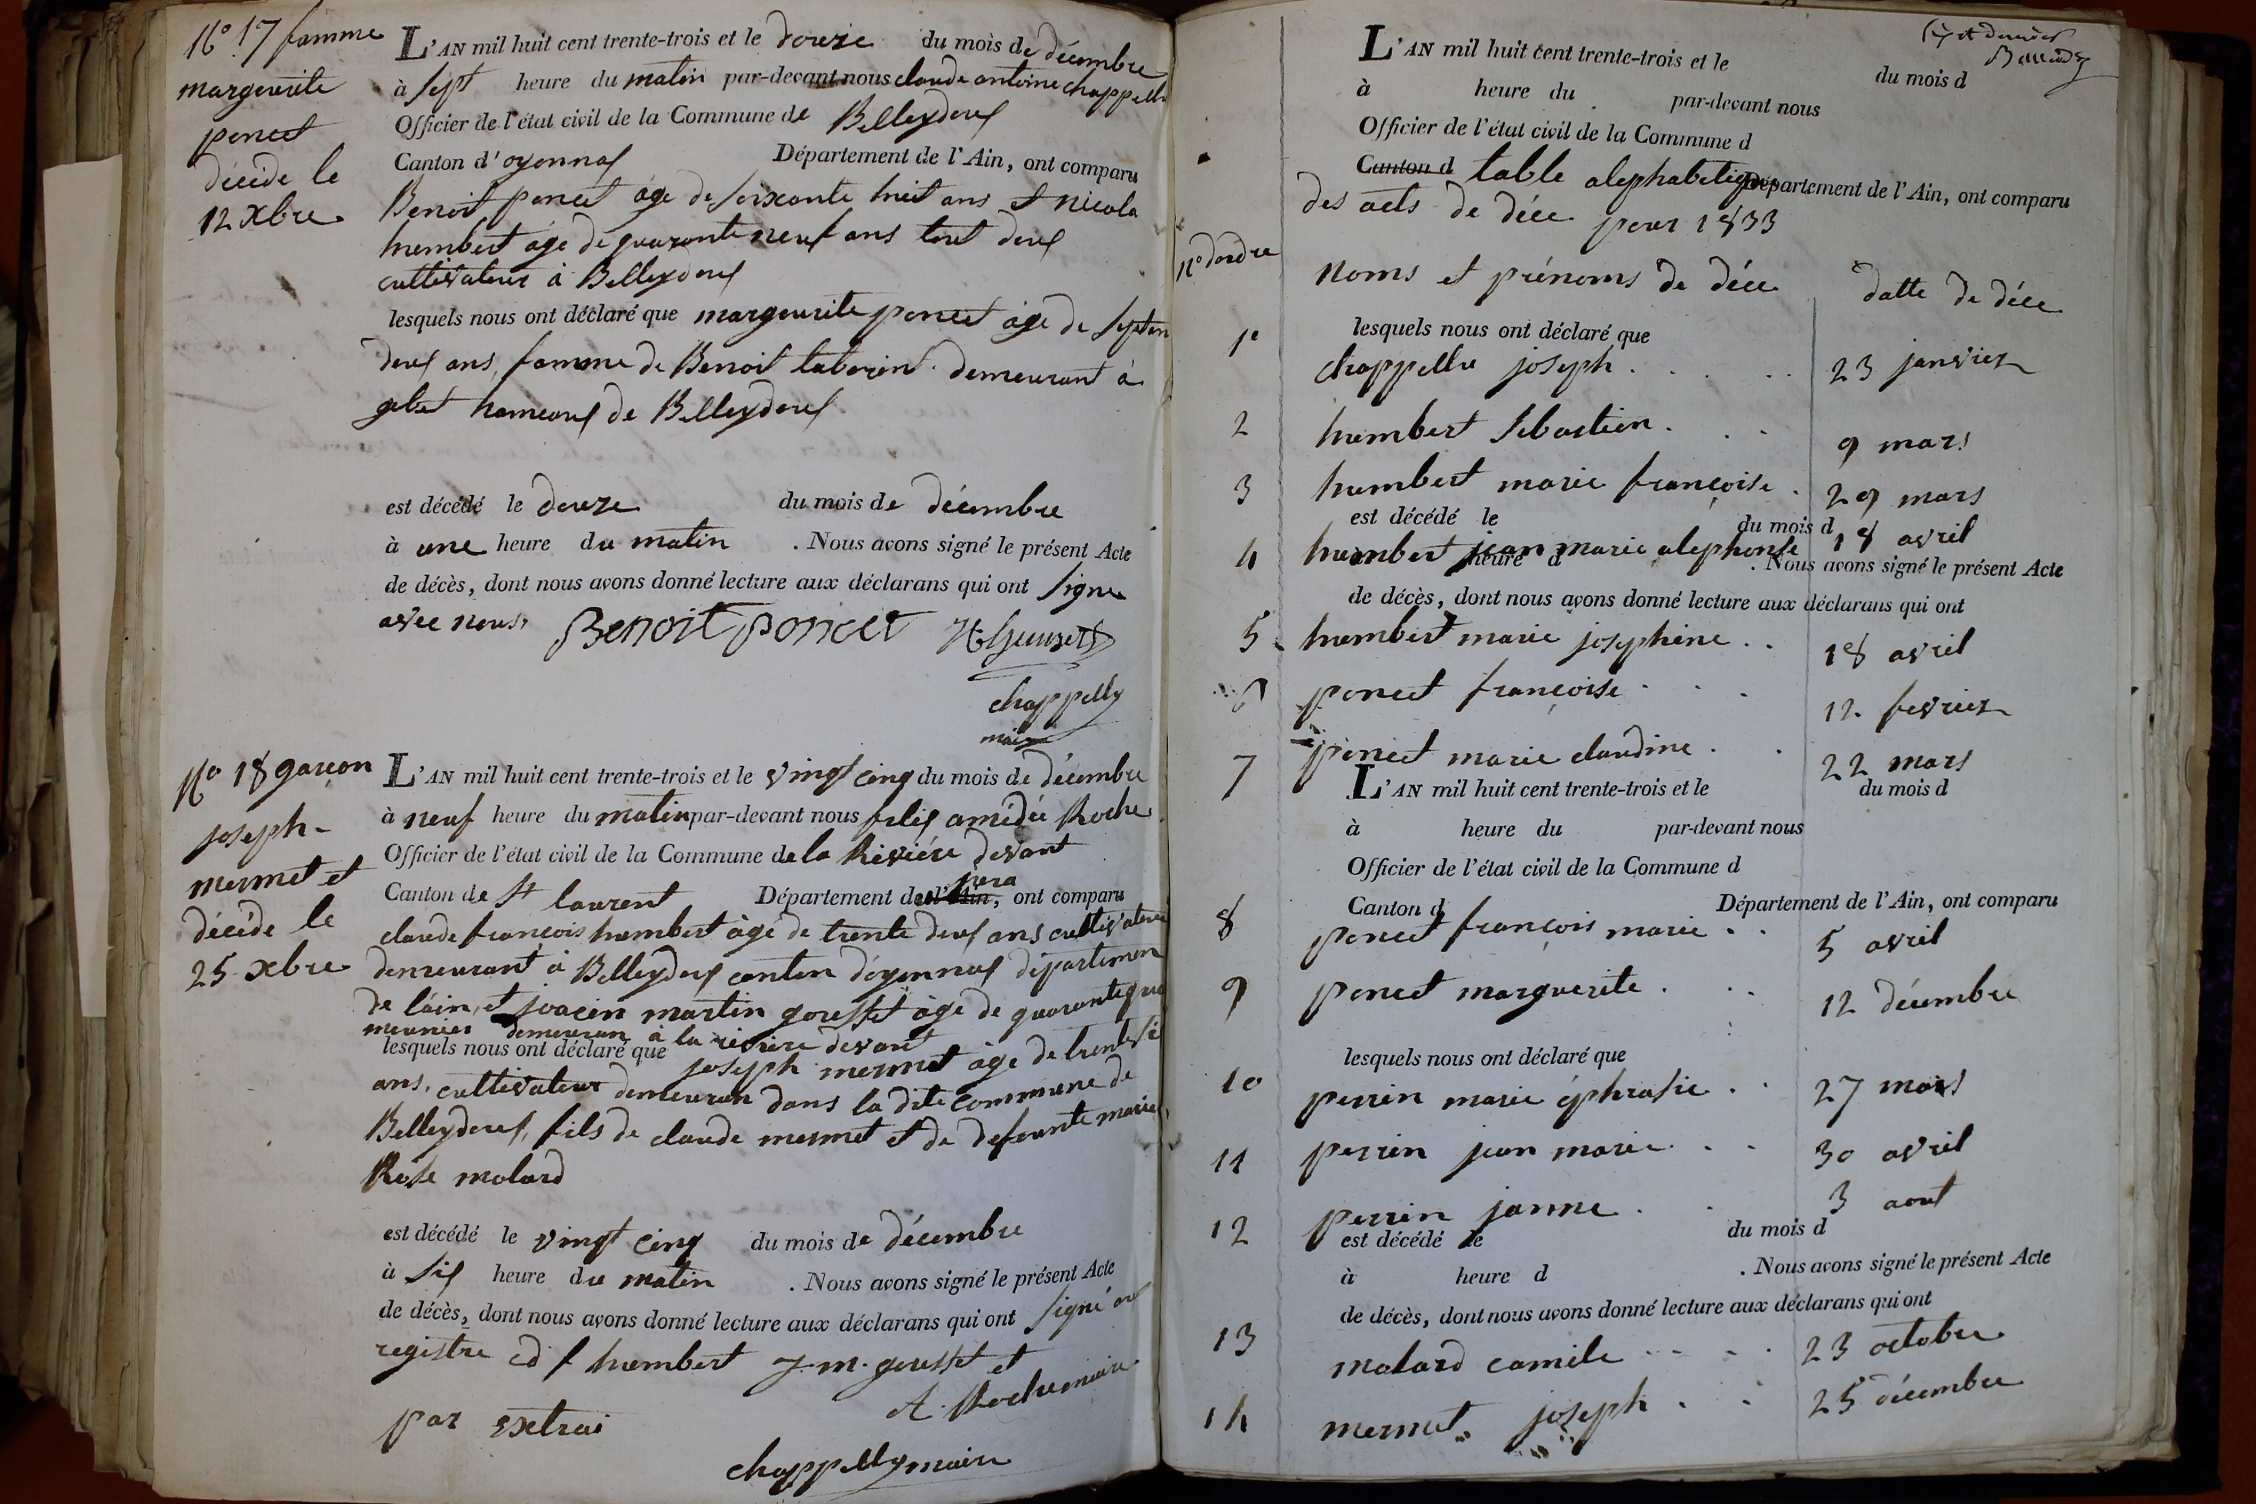 No 17 famme
marguerite
poncet
décéde le
12 Xbre
L'AN mil huit cent trente-trois et le douze du mois de décembre
à sept heure du matin par-devant nous claude antoine chappelly
Officier de l'état civil de la Commune de Belleydoux
Canton d'oyonnax Département de l'Ain, ont comparu
Benoit poncet âge de soixante huit ans et nicola
humbert âgé de quaronte neuf ans tout deux
cultivateur à Belleydoux
lesquels nous ont déclaré que marguerite poncet âge de septan
deux ans, famme de Benoit demeurant à
gobet hameaux de Belleydoux
est décédé le douze du mois de décembre
à une heure du matin . Nous avons signé le présent Acte
de décès, dont nous avons donné lecture aux déclarans qui ont signe
avec nous, Benoit poncet
chappelly
maire
No 18 garcon
joseph
mermet et
décéde le
25 xbre
L'AN mil huit cent trente-trois et le vingt cinq du mois de décembre
à neuf heure du matin par-devant nous felix amédée Roche
Officier de l'état civil de la Commune de la Riviére devant
Canton de St laurent Département de l'Ain, jura ont comparu
claude françois humbert âgé de trente deux ans cultivateur
demeurant à Belleydoux canton d'oyonnax départemen
de l'ain, et joacin martin gousset âgé de quarante
meunier demeuran à la riviere devant
lesquels nous ont déclaré que joseph mermet âgé de trente si
ans, cultivateur demeuran dans la dite commune de
Belleydoux, fils de claude mermet et de defounte marie
Rose molard
est décédé le vingt cinq du mois de décembre
à six heure du matin . Nous avons signé le présent Acte
de décès, dont nous avons donné lecture aux déclarans qui ont signé au
registre humbert J. M. gousset et
A. Roche maire
par extrai
chappelly maire
L'AN mil huit cent trente-trois et le du mois d
à heure du par-devant nous
Officier de l'état civil de la Commune d
Canton d table alephabetique Département de l'Ain, ont comparu
des acts de déce pour 1833
No dordre noms et prénoms de déce datte de déce
lesquels nous ont déclaré que
1e chappellu joseph 23 janvier
2 humbert sebastien 9 mars
3 humbert marie françoise 29 mars
est décédé le du mois d
4 humbert jean marie alephonse 18 avril
heure d . Nous avons signé le présent Acte
de décès, dont nous avons donné lecture aux déclarans qui ont
5 humbert marie josephine 18 avril
poncet françoise 12 fevrier
7 poncet marie claudine 22 mars
L'AN mil huit cent trente-trois et le du mois d
à heure du par-devant nous
Officier de l'état civil de la Commune d
Canton d Département de l'Ain, ont comparu
8 poncet françois marie 5 avril
9 poncet marguerite 12 décembre
lesquels nous ont déclaré que
10 perrin marie éphrasie 27 mars
11 perrin jean marie 30 avril
12 perrin janne 3 aout
est décédé le du mois d
à heure d . Nous avons signé le présent Acte
de décès, dont nous avons donné lecture aux déclarans qui ont
13 molard camile 23 octobre
14 mermet joseph 25 décembre